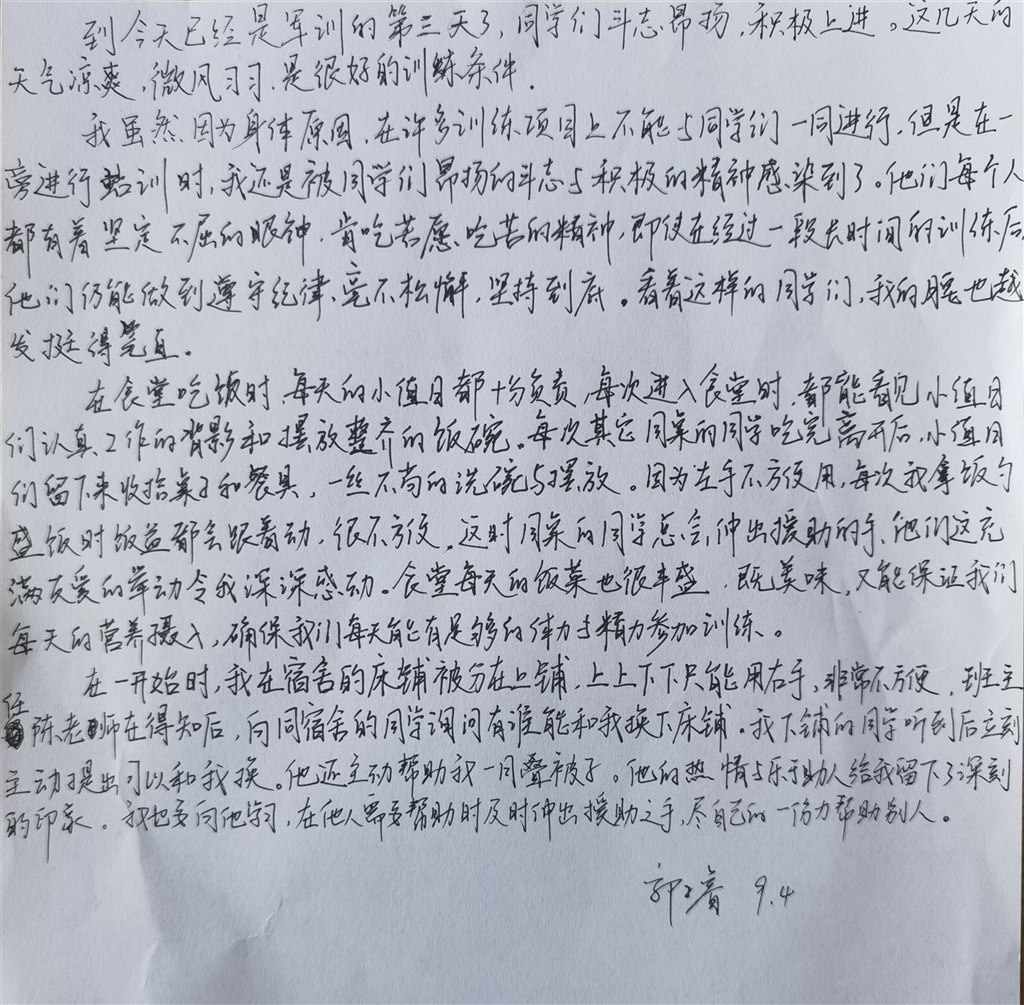 到今天已经是军训的第三天了，同学们斗志昂扬，积极上进。这几天的
天气凉爽，微风习习，是很好的训练条件。
我虽然因为身体原因，在许多训练项目上不能与同学们一同进行，但是在一
旁进行跕训时，我还是被同学们昂扬的斗志与积极的精神感染到了。他们每个人
都有着坚定不屈的眼神，肯吃苦愿吃苦的精神，即使在经过一段长时间的训练后
他们仍能做到遵守纪律，毫不松懈，坚持到底。看着这样的同学们，我的腰也越
发挺得笔直。
在食堂吃饭时，每天的小值日都十分负责，每次进入食堂时，都能看见小值日
们认真工作的背影和摆放整齐的饭碗。每次其它同桌的同学吃完离开后，小值日
们留下来收拾桌子和餐具，一丝不苟的洗碗与摆放。因为左手不方便用，每次我拿饭勺
盛饭时饭盆都会跟着动，很不方便。这时同桌的同学总会伸出援助的手，他们这充
满友爱的举动令我深深感动。食堂每天的饭菜也很丰盛，既美味，又能保证我们
每天的营养摄入，确保我们每天能有足够的体力与精力参加训练。
在一开始时，我在宿舍的床铺被分在上铺，上上下下只能用右手，非常不方便，班主
任陈老师在得知后，向同宿舍的同学询问有谁能和我换下床铺。我下铺的同学听到后立刻
主动提出可以和我换。他还主动帮助我一同叠被子。他的热情与乐于助人给我留下了深刻
的印象。我也要向他学习，在他人需要帮助时及时伸出援助之手，尽自己的一份力帮助别人。
郭 9.4